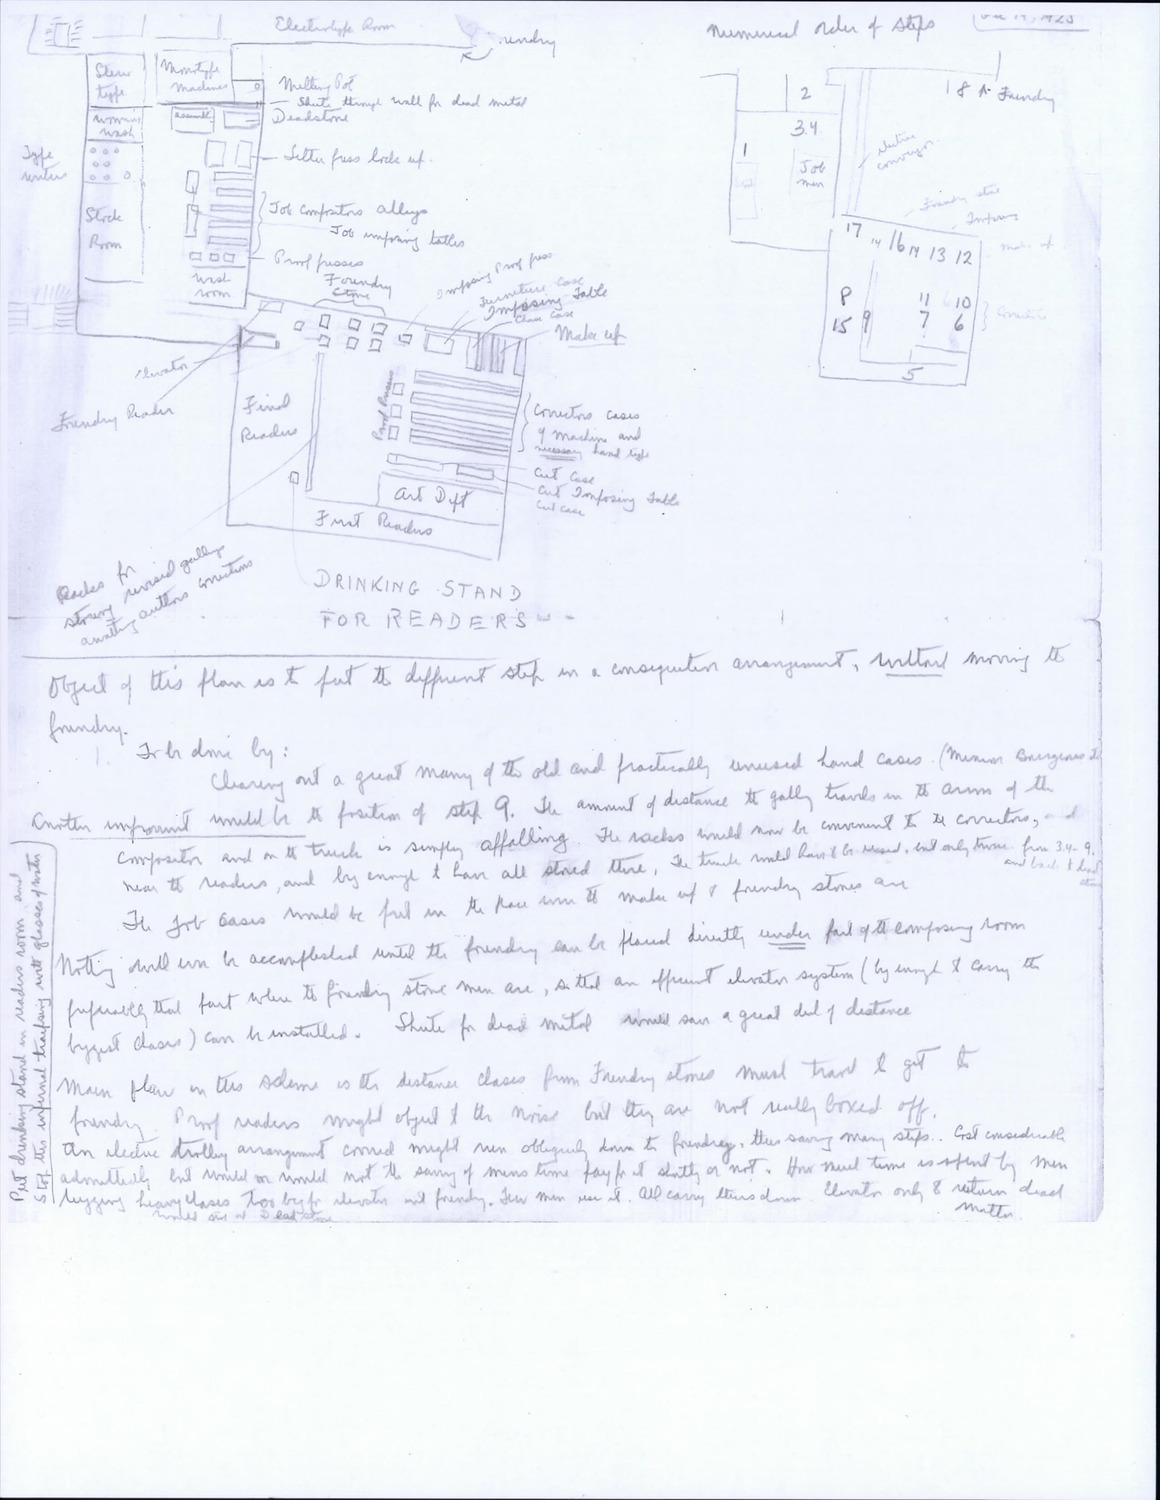 Electrotype Room
Foundry
Numerical order of Steps
1925
Stereo
type
Monotype
Machines
Melting Pot
Shute through wall for dead metal
Deadstone
assembl
womens
wash
Type
writers
Letter press lock up
Stock
Room
Job compositors alleys
Job imposing tables
Proof presses
wash
room
Foundry
Stone
Imposing Proof press
Furniture case
Imposing Table
Chase Case
Make up
Elevator
Foundry Reader
Final
Readers
Proof Presses
Correctors cases
of machine and
necessary hand type
Cut Case
Cut Imposing Table
Cut case
Art Dept
First Readers
Racks for
storing revised galleys
awaiting authors corrections
DRINKING STAND
FOR READERS
2
18 to Foundry
3.4.
1
Job
men
electric
conveyor
Foundry stone
Imposing
make up
17 14 16 14 13 12
8 11 10
15 9 7 6
Correctors
5
Object of this plan is to put the different steps in a consecutive arrangement, without moving the
foundry.
To be done by:
Clearing out a great many of the old and practically unused hand cases.
Another improvement would be the position of step 9. The amount of distance the galley travels in the arms of the
compositor and on the truck is simply appalling. The racks would now be convenient to the correctors, and
near the readers, and big enough to have all stored there, The trucks would have to be used, but only from 3.4 - 9.
and back to dead
stone
The Job Cases would be put in the place where the make up & foundry stones are
Nothing will ever be accomplished until the foundry can be placed directly under part of the composing room
preferably that part where the foundry stone men are, so that an efficient elevator system (big enough to carry the
biggest chases) can be installed. Shute for dead metal would save a great deal of distance
Main flaw in this scheme is the distance chases from Foundry stones must travel to get to
foundry. Proof readers might object to the noise but they are not really boxed off.
An electric trolley arrangement might run obliquely down to foundry, thus saving many steps. Cost considerable
admittedly but would or would not the saving of mens time pay for it shortly or not. How much time is spent by men
lugging heavy chases too big for elevator into foundry. Few men use it. All carry theirs down. Elevator only to return dead
matter.
Put drinking stand in readers room and
stop this infernal traipsing with glasses of water